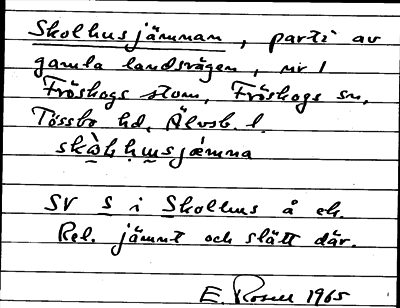 Skolhusjämnan, parti av
gamla landsvägen, nr 1
Fröskogs stom, Fröskogs sn,
Tössbo hd, Älvsb. l.
SV s i Skolhus å ek.
Rel. jämnt och slätt där.
E. Rosell 1965